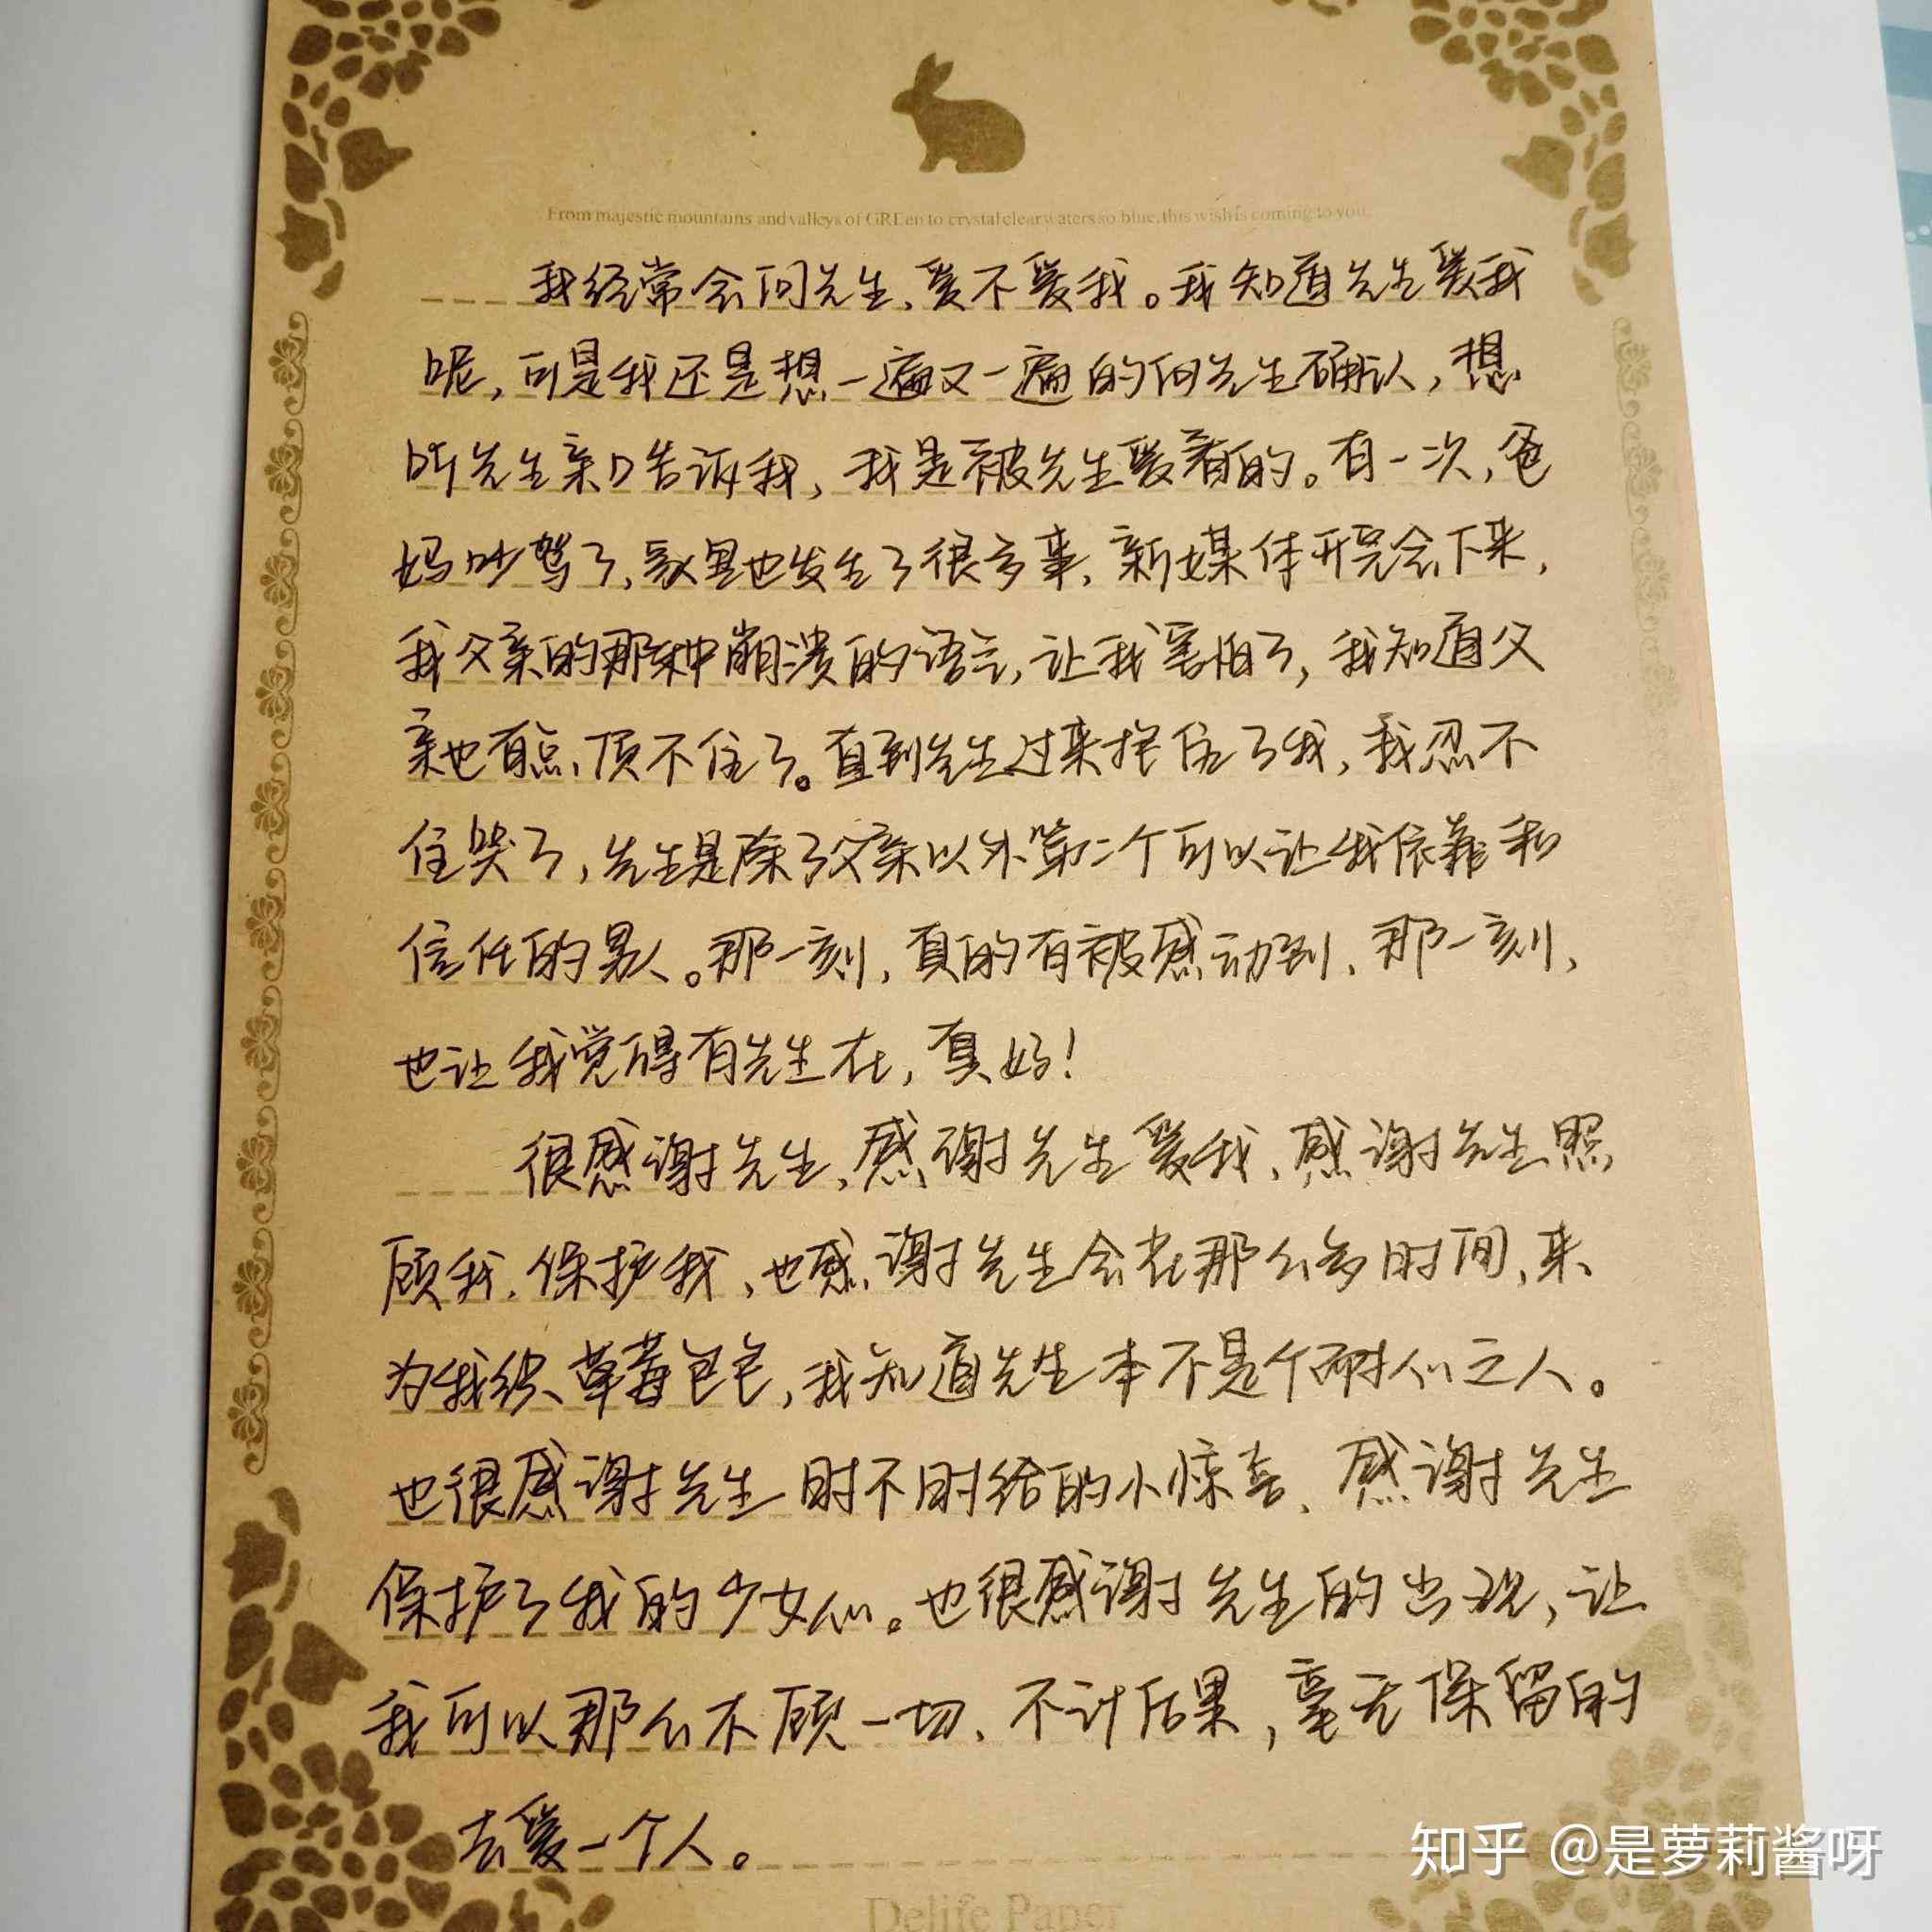 From majestic mountains and valleys of GREen to crystal clear waters so blue, this wish is coming to you.
我经常会问先生、爱不爱我。我知道先生爱我
呢，可是我还是想一遍又一遍的问先生确认，想
听先生亲口告诉我，我是被先生爱着的。有一次，爸
妈吵驾了、家里也发生了很多事，新媒体开完会下来，
我父亲的那种崩溃的语言，让我害怕了，我知道父
亲也有点顶不住了。直到先生过来抱住了我，我忍不
住哭了，先生是除了父亲以外第二个可以让我依靠和
信任的男人。那一刻，真的有被感动到、那一刻，
也让我觉得有先生在，真好！
很感谢先生，感谢先生爱我、感谢先生照
顾我、保护我、也感谢先生会在那么多时间、来
为我织草莓包包，我知道先生本不是个耐心之人。
也很感谢先生时不时给的小惊喜、感谢先生
保护了我的少女心。也很感谢先生的出现，让
我可以那么不顾一切、不计后果，毫无保留的
去爱一个人。
知乎 @是萝莉酱呀
Delife Paper